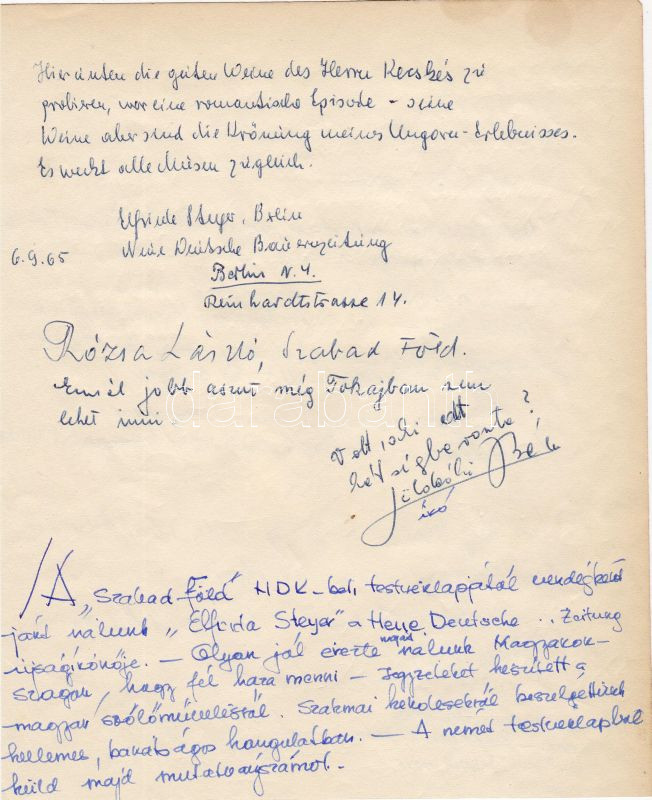 Hier unten die guten Weine des Herrn Kecskés zu
probieren, war eine romantische Episode – seine
Weine aber sind die Krönung meines Ungarn-Erlebnisses.
Es weckt alle Musen zugleich.
Elfriede Steyer, Berlin
6.9.65 Neue Deutsche Bauernzeitung
Berlin N.4.
Reinhardtstrasse 14.
Rózsa László, Szabad Föld.
Ennél jobb aszut még Tokajban sem
lehet inni
Volt, aki ezt
kétségbe vonta?
Béla
író
A "Szabad Föld" NDK-beli testvérlapjától vendégként
járt nálunk "Elfrida Steyer" a Neue Deutsche .. Zeitung
újságírónője. — Olyan jól érezte magát nálunk Magyaror-
szágon, hogy fél haza menni — Jegyzeteket készített a
magyar szőlőművelésről. Szakmai kérdésekről beszélgettünk
kellemes, barátságos hangulatban. — A német testvérlapból
küld majd mutatványszámot.-
darabanth